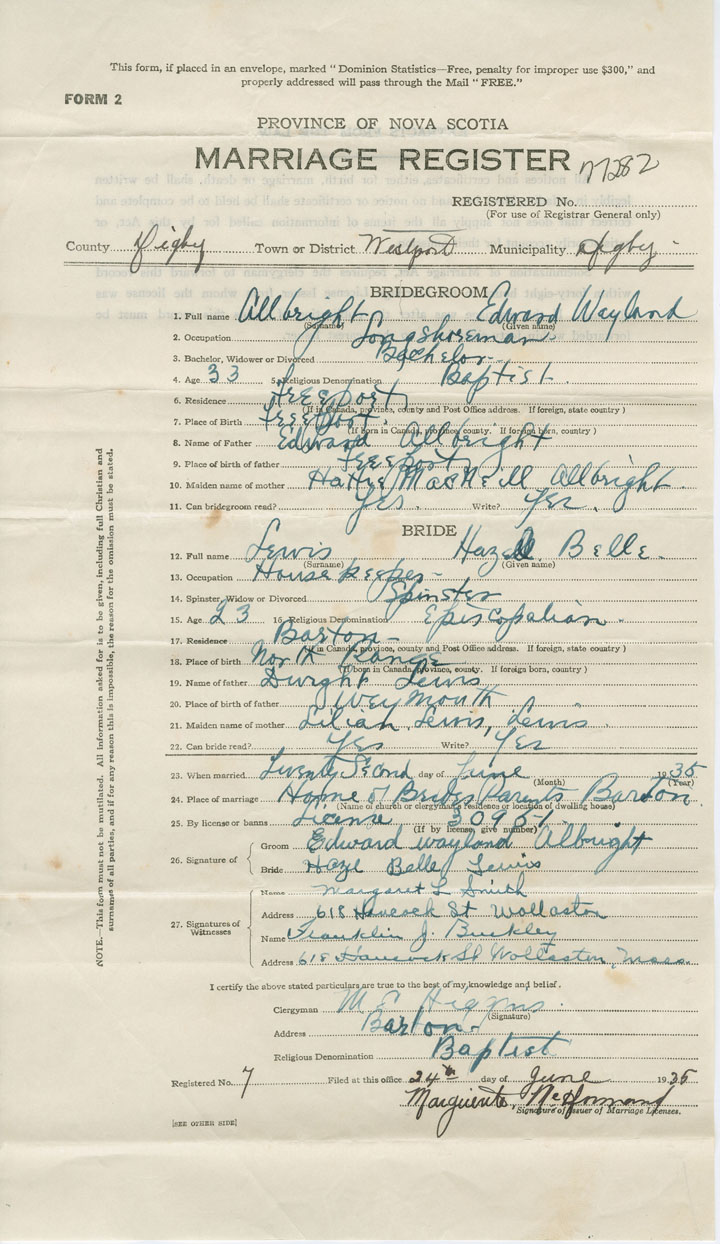 This form, if placed in an envelope, marked "Dominion Statistics—Free, penalty for improper use $300," and
properly addressed will pass through the Mail "FREE."
FORM 2
PROVINCE OF NOVA SCOTIA
MARRIAGE REGISTER 77282
REGISTERED No.
(For use of Registrar General only)
County Digby Town or District Westport Municipality Digby
BRIDEGROOM
1. Full name Allbright Edward Wayland
(Surname) (Given name)
2. Occupation Longshoreman
3. Bachelor, Widower or Divorced Bachelor
4. Age 33 5. Religious Denomination Baptist
6. Residence Freeport
(If in Canada, province, county and Post Office address. If foreign, state country)
7. Place of Birth Freeport
(If born in Canada, province, county. If foreign born, country)
8. Name of Father Edward Allbright
9. Place of birth of father Freeport
10. Maiden name of mother Hattie MacNeill Allbright
11. Can bridegroom read? Yes Write? Yes.
BRIDE
12. Full name Lewis Hazel Belle
(Surname) (Given name)
13. Occupation House keeper
14. Spinster, Widow or Divorced Spinster
15. Age 23 16. Religious Denomination Episcopalian
17. Residence Barton
(If in Canada, province, county and Post Office address. If foreign, state country)
18. Place of birth North Range
(If born in Canada, province, county. If foreign born, country)
19. Name of father Dwight Lewis
20. Place of birth of father Weymouth
21. Maiden name of mother Lilian Lewis, Lewis
22. Can bride read? Yes Write? Yes
23. When married Twenty Second day of June 1935
(Month) (Year)
24. Place of marriage Home of Brides Parents Barton
(Name of church or clergyman's residence or location of dwelling house)
25. By license or banns License 30951
(If by license, give number)
26. Signature of
Groom Edward wayland Albright
Bride Hazel Belle Lewis
27. Signatures of Witnesses
Name Margaret L Smith
Address 618 Hancock St Wollaston
Name Franklin J. Buckley
Address 618 Hancock St Wollaston, Mass.
I certify the above stated particulars are true to the best of my knowledge and belief.
Clergyman M E Higgins
(Signature)
Address Barton
Religious Denomination Baptist
Registered No. 7 Filed at this office 24th day of June 1935
Marguerite
Signature of Issuer of Marriage Licenses.
[SEE OTHER SIDE]
NOTE.—This form must not be mutilated. All information asked for is to be given, including full Christian and
surnames of all parties, and if for any reason this is impossible, the reason for the omission must be stated.